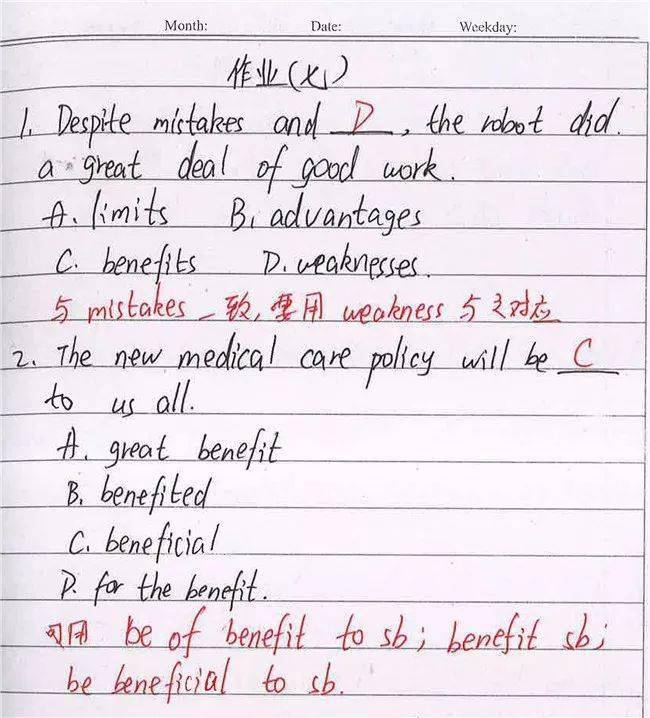 Month: Date: Weekday:
作业(九)
1. Despite mistakes and D, the robot did.
a great deal of good work.
A. limits B. advantages
C. benefits D. weaknesses.
与 mistakes 一致, 要用 weakness 与之对应
2. The new medical care policy will be C
to us all.
A. great benefit
B. benefited
C. beneficial
D. for the benefit.
可用 be of benefit to sb; benefit sb;
be beneficial to sb.